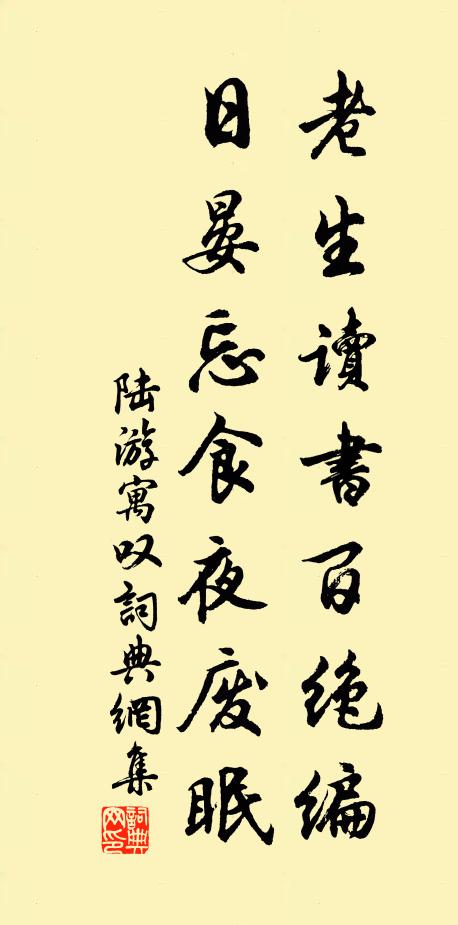 老生读書百绝编
日晏忘食夜废眠
陆游寓叹詞典網集
詞典
网印